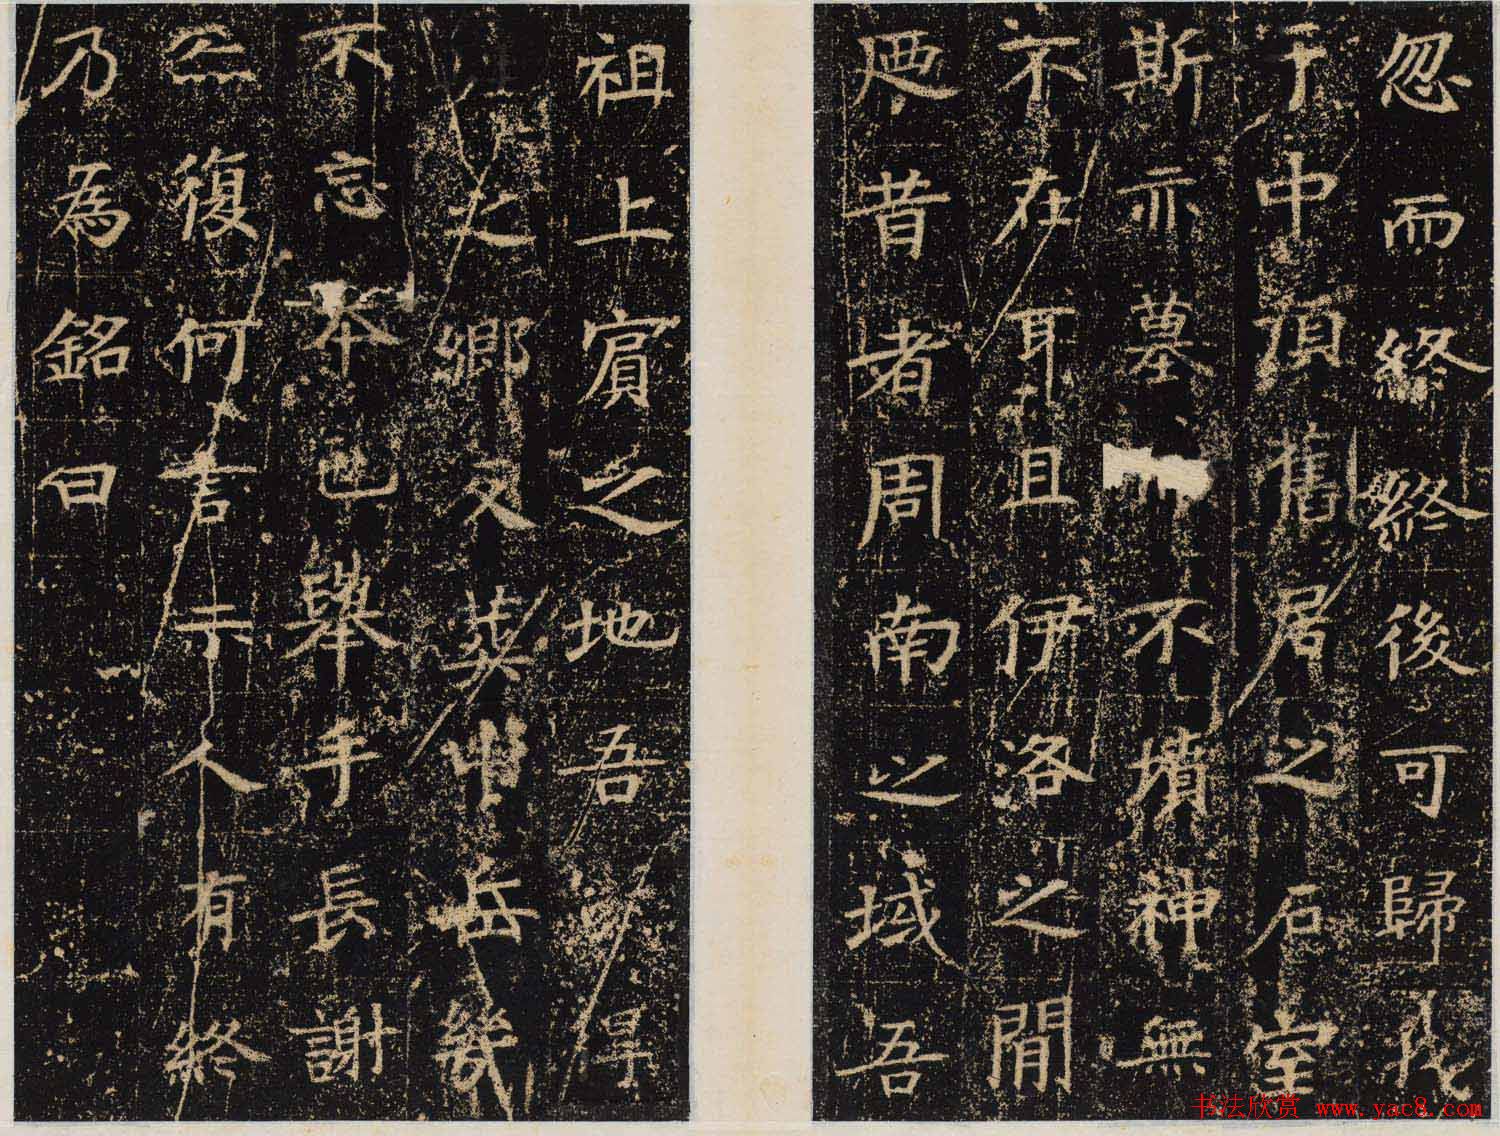 忽而終終後可歸我
于中頂舊居之石室
斯亦墓而不墳神無
不在耳且伊洛之閒
迺昔者周南之域吾
祖上賓之地吾得
之鄉反葬中岳幾
不忘本也舉手長謝
亦復何言示人有終
乃為銘曰
书法欣赏 www.yac8.com